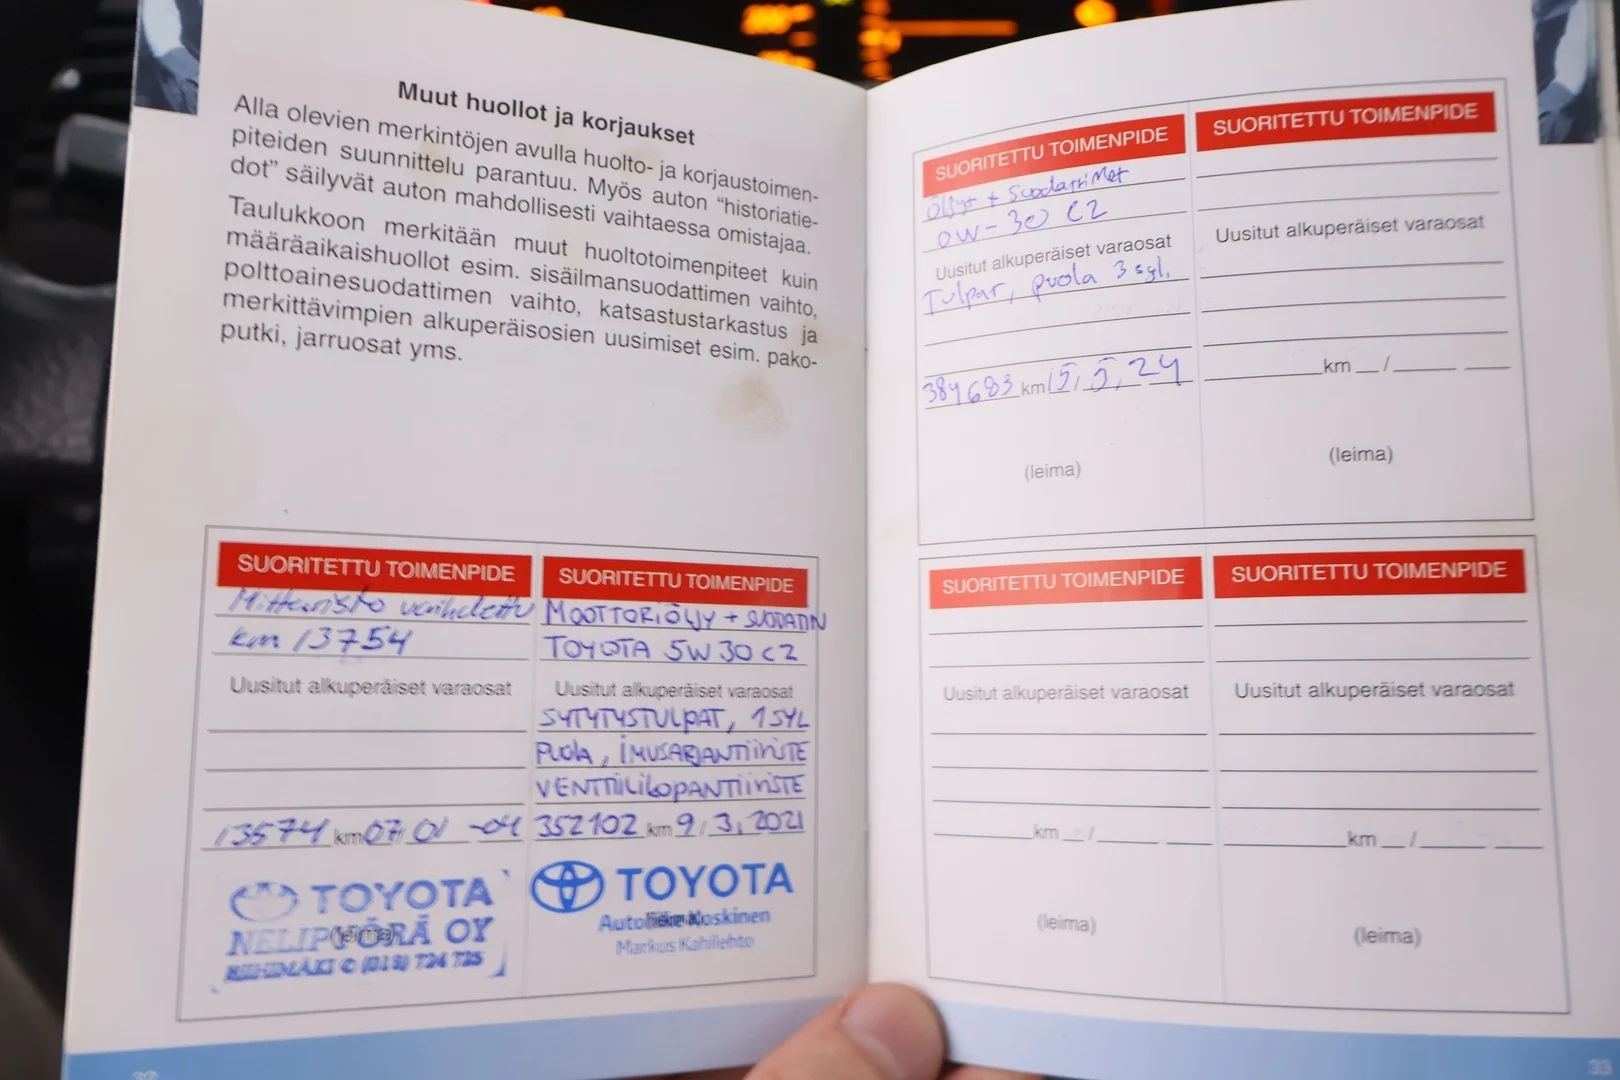 Muut huollot ja korjaukset
Alla olevien merkintöjen avulla huolto- ja korjaustoimen-
piteiden suunnittelu parantuu. Myös auton "historiatie-
dot" säilyvät auton mahdollisesti vaihtaessa omistajaa.
Taulukkoon merkitään muut huoltotoimenpiteet kuin
määräaikaishuollot esim. sisäilmansuodattimen vaihto,
polttoainesuodattimen vaihto, katsastustarkastus ja
merkittävimpien alkuperäisosien uusimiset esim. pako-
putki, jarruosat yms.
SUORITETTU TOIMENPIDE
Mittaristo vaihdettu
km 13754
Uusitut alkuperäiset varaosat
13574 km 07/01 -04
TOYOTA
NELIPYÖRÄ OY
(leima)
RIIHIMÄKI (019) 724 725
SUORITETTU TOIMENPIDE
MOOTTORIÖLJY + SUODATIN
TOYOTA 5W30 C2
Uusitut alkuperäiset varaosat
SYTYTYSTULPAT, 1 SYL
PUOLA, IMUSARJANTIIVISTE
VENTTIILIKOPANTIIVISTE
352102 km 9/3, 2021
TOYOTA
Autoliike Koskinen
(leima)
Markus Kahilehto
32
SUORITETTU TOIMENPIDE
Öljyt + Suodattimet
0W-30 C2
Uusitut alkuperäiset varaosat
Tulpat, puola 3 syl.
384683 km 15/5, 24
(leima)
SUORITETTU TOIMENPIDE
Uusitut alkuperäiset varaosat
km /
(leima)
SUORITETTU TOIMENPIDE
Uusitut alkuperäiset varaosat
km /
(leima)
SUORITETTU TOIMENPIDE
Uusitut alkuperäiset varaosat
km /
(leima)
33